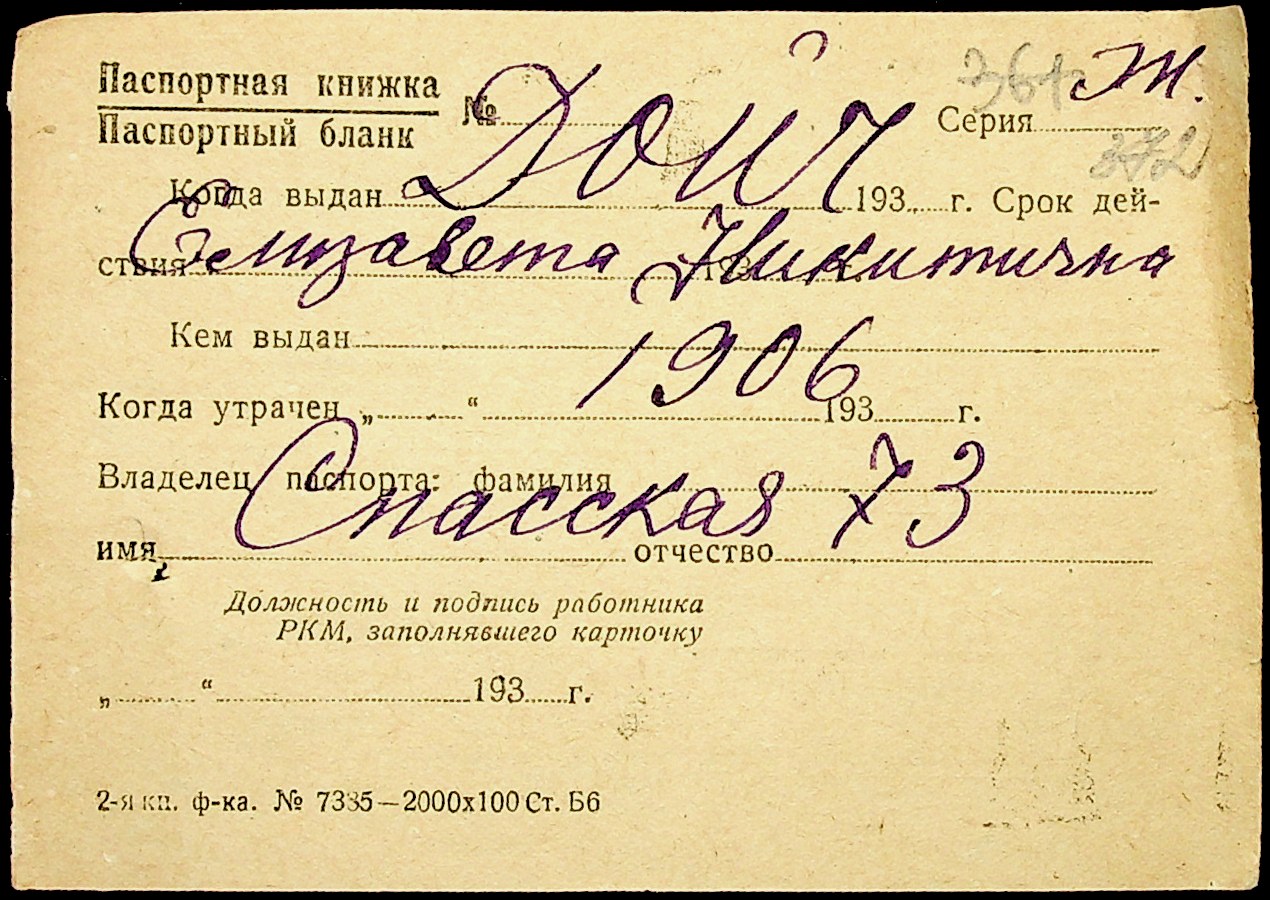 Паспортная книжка
Паспортный бланк
№ ДОЙЧ Серия
361 Ж.
372
Когда выдан 193 г. Срок дей-
ствия 193 г.
Елизавета Никитична
Кем выдан
1906
Когда утрачен „ “ 193 г.
Владелец паспорта: фамилия
Спасская 73
имя отчество
Должность и подпись работника
РКМ, заполнявшего карточку
„ “ 193 г.
2-я кп. ф-ка. № 7385—2000х100 Ст. Б6